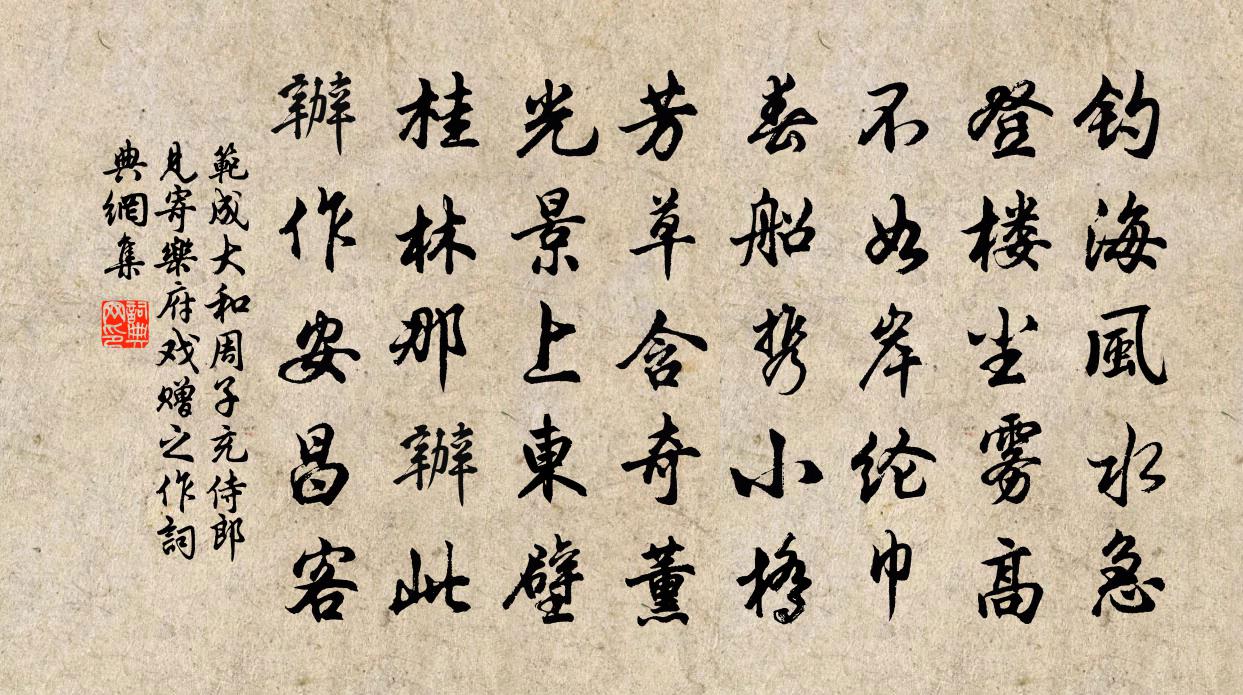 钓海風水急
登楼尘雾高
不如岸纶巾
春船携小橋
芳草含奇薰
光景上東壁
桂林那辦此
辦作安昌客
範成大和周子充侍郎
見寄樂府戏赠之作詞
典網集
詞典
网印